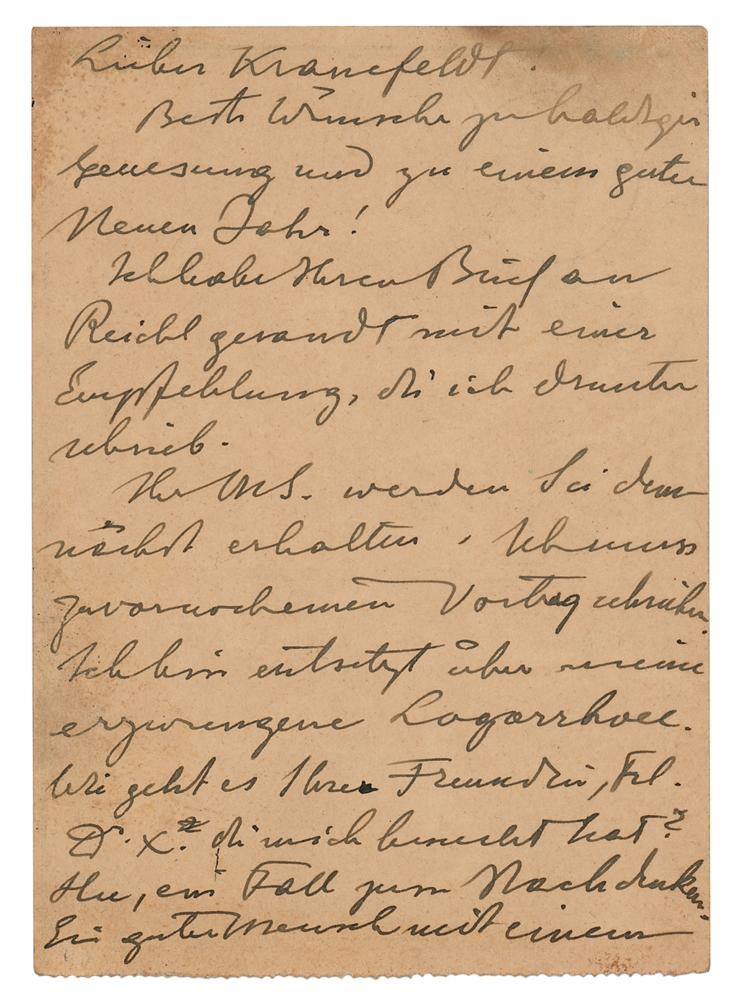 Lieber Kranefeldt.
Beste Wünsche zu baldiger
Genesung und zu einem guten
Neuen Jahr!
Ich habe Ihren Brief an
Reichl gesandt mit einer
Empfehlung, die ich drunter
schrieb.
Ihr MS. werden Sie dem-
nächst erhalten. Ich muss
zuvor noch einen Vortrag schreiben.
Ich bin entsetzt über meine
erzwungene Logorrhoee.
Wie geht es Ihrer Freundin, Frl.
Dr. X. die mich besucht hat?
ein Fall zum Nachdenken.
Ein guter Mensch mit einem